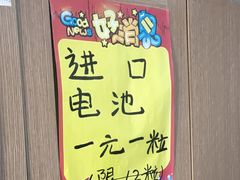 GOOD NEWS 好消息
进口
电池
一元一粒
(限 12粒)